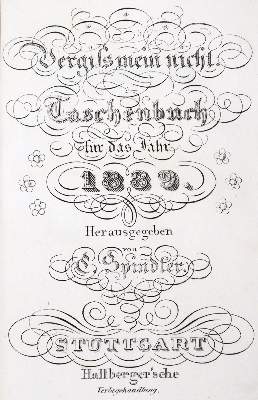 Vergissmein nicht.
Taschenbuch
für das Jahr
1839.
Herausgegeben
von
C. Spindler.
STUTTGART
Hallberger'sche
Verlagshandlung.